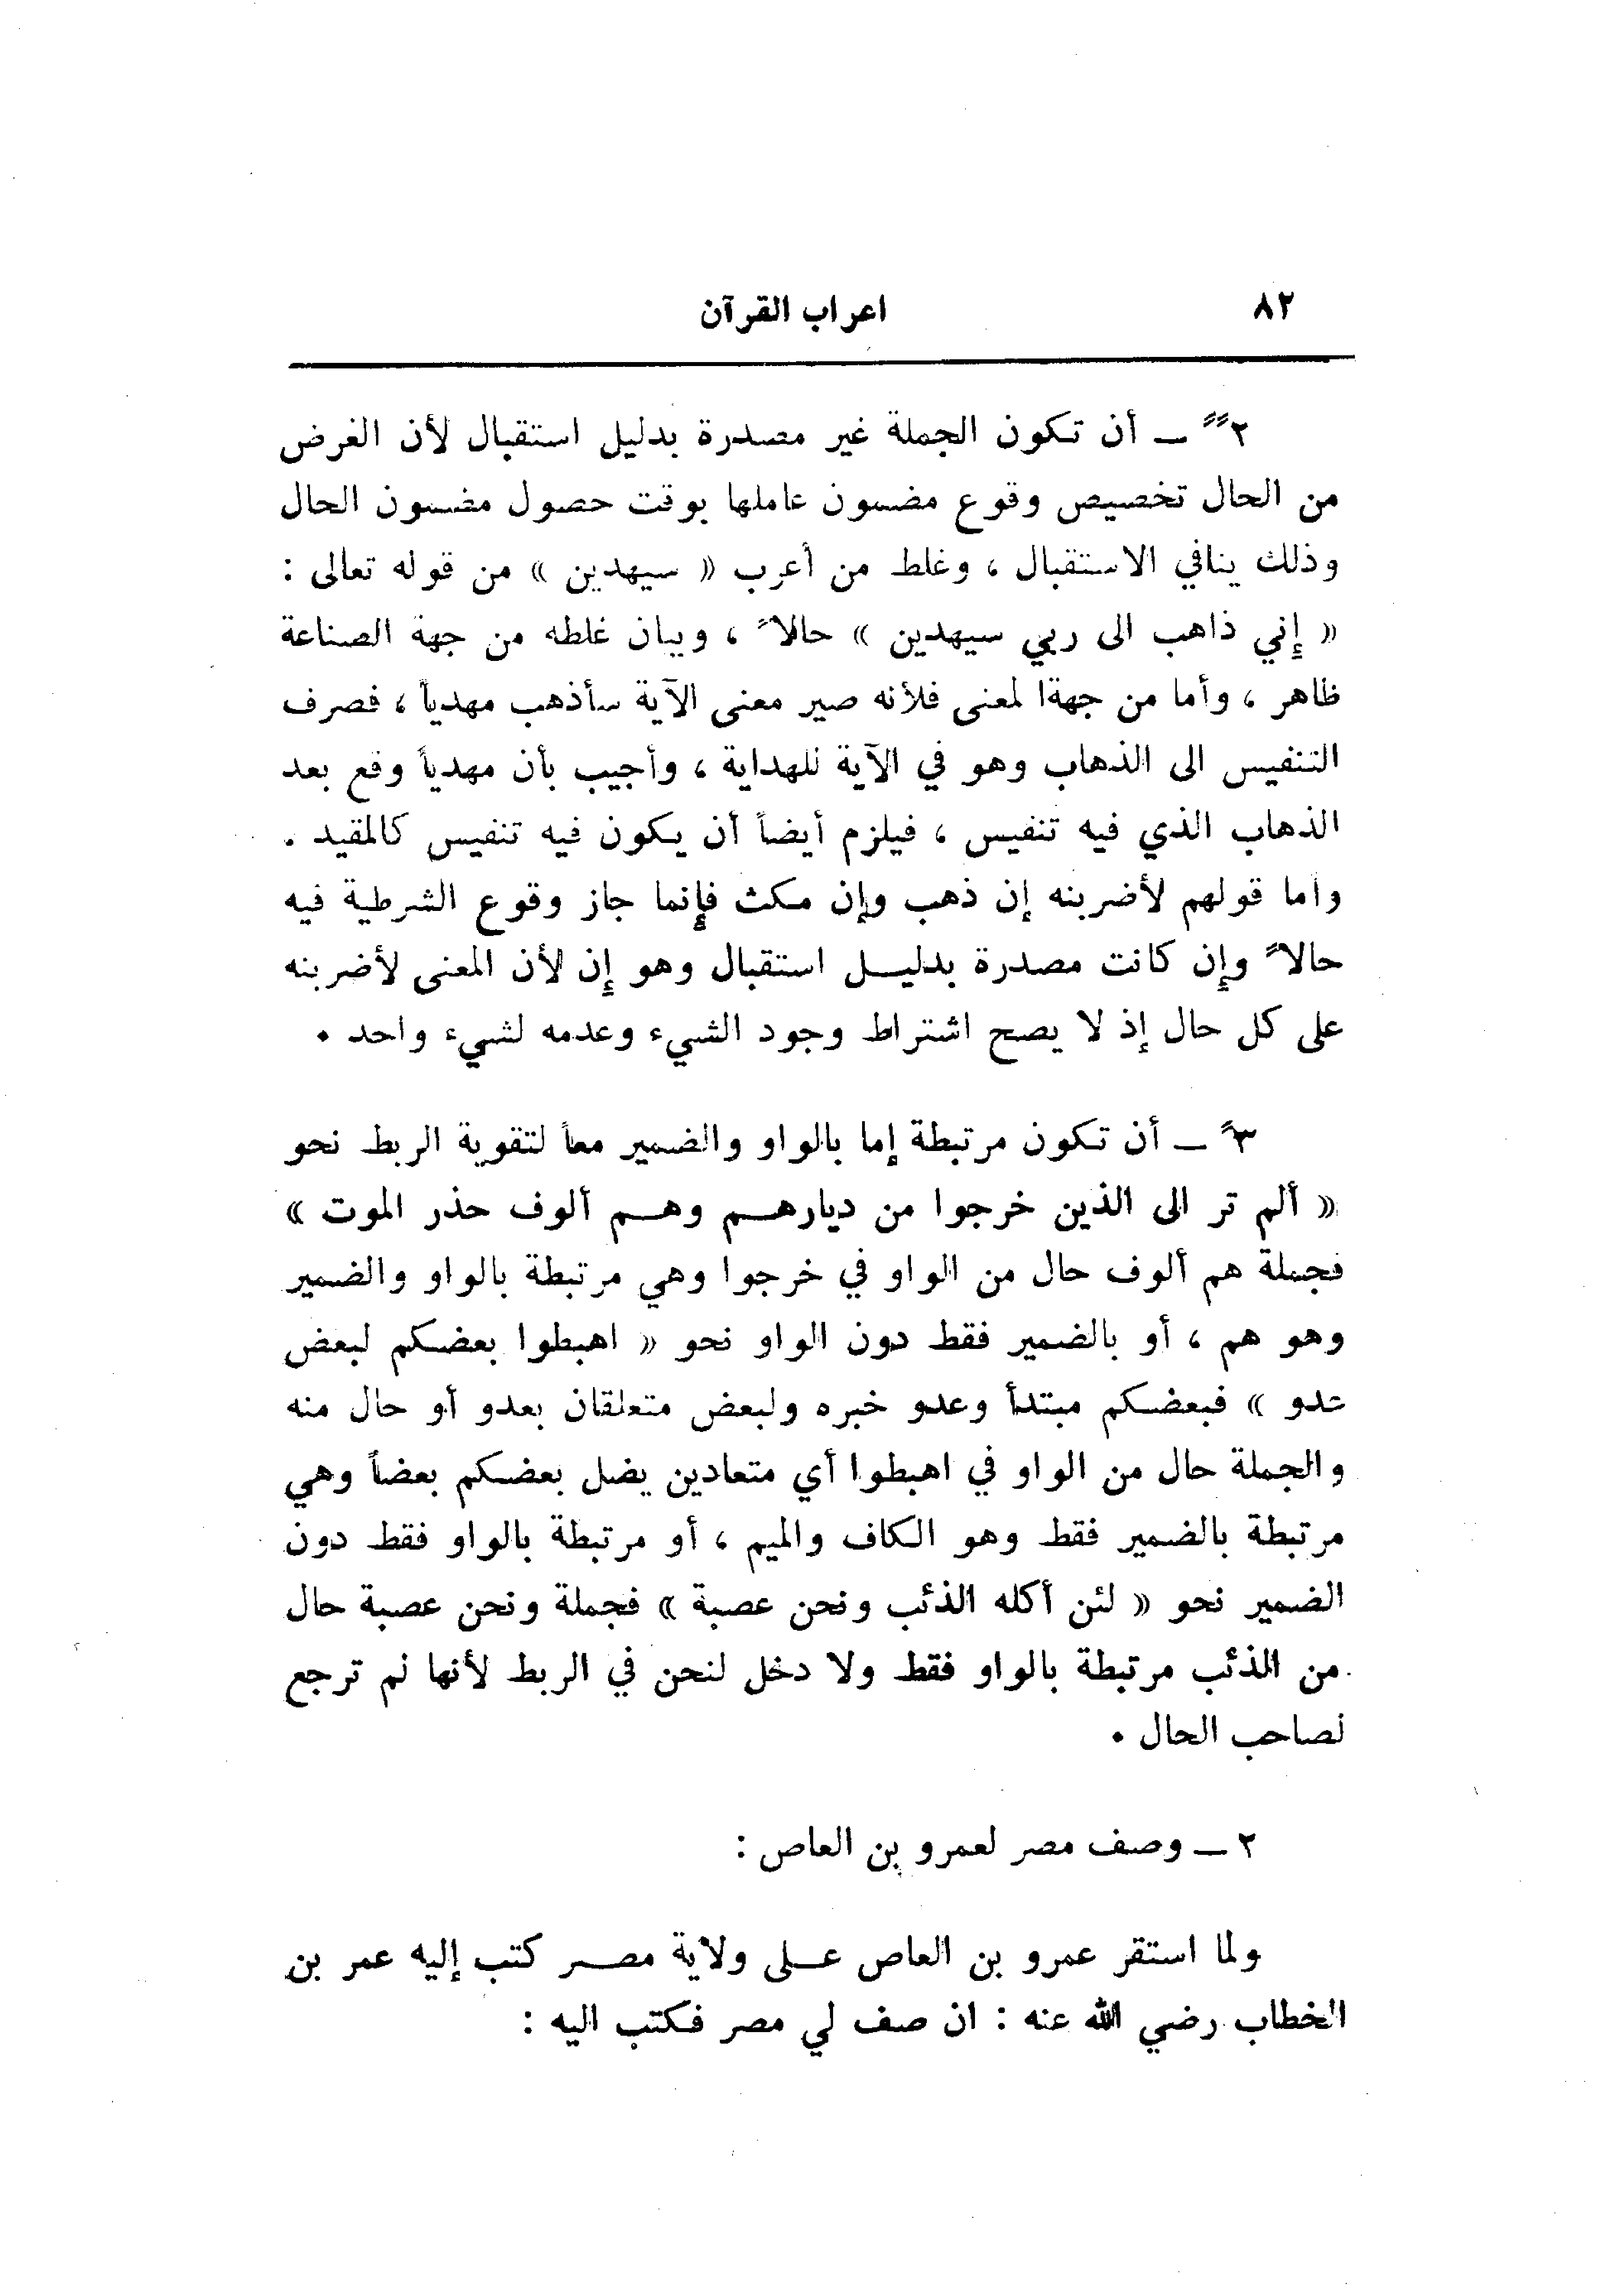 ٨٢ اعراب القرآن
٢ً ــ أن تكون الجملة غير مصدرة بدليل استقبال لأن الغرض
من الحال تخصيص وقوع مضمون عاملها بوقت حصول مضمون الحال
وذلك ينافي الاستقبال ، وغلط من أعرب « سيهدين » من قوله تعالى :
« إني ذاهب الى ربي سيهدين » حالاً ، وبيان غلطه من جهة الصناعة
ظاهر ، وأما من جهةا لمعنى فلأنه صير معنى الآية سأذهب مهدياً ، فصرف
التنفيس الى الذهاب وهو في الآية للهداية ، وأجيب بأن مهدياً وقع بعد
الذهاب الذي فيه تنفيس ، فيلزم أيضاً أن يكون فيه تنفيس كالمقيد .
وأما قولهم لأضربنه إن ذهب وإن مكث فإنما جاز وقوع الشرطية فيه
حالاً وإن كانت مصدرة بدليل استقبال وهو إن لأن المعنى لأضربنه
على كل حال إذ لا يصح اشتراط وجود الشيء وعدمه لشيء واحد .
٣ً ــ أن تكون مرتبطة إما بالواو والضمير معاً لتقوية الربط نحو
« ألم تر الى الذين خرجوا من ديارهم وهم ألوف حذر الموت »
فجملة هم ألوف حال من الواو في خرجوا وهي مرتبطة بالواو والضمير
وهو هم ، أو بالضمير فقط دون الواو نحو « اهبطوا بعضكم لبعض
عدو » فبعضكم مبتدأ وعدو خبره ولبعض متعلقان بعدو أو حال منه
والجملة حال من الواو في اهبطوا أي متعادين يضل بعضكم بعضاً وهي
مرتبطة بالضمير فقط وهو الكاف والميم ، أو مرتبطة بالواو فقط دون
الضمير نحو « لئن أكله الذئب ونحن عصبة » فجملة ونحن عصبة حال
من الذئب مرتبطة بالواو فقط ولا دخل لنحن في الربط لأنها لم ترجع
لصاحب الحال .
٢ ــ وصف مصر لعمرو بن العاص :
ولما استقر عمرو بن العاص على ولاية مصر كتب إليه عمر بن
الخطاب رضي الله عنه : ان صف لي مصر فكتب اليه :